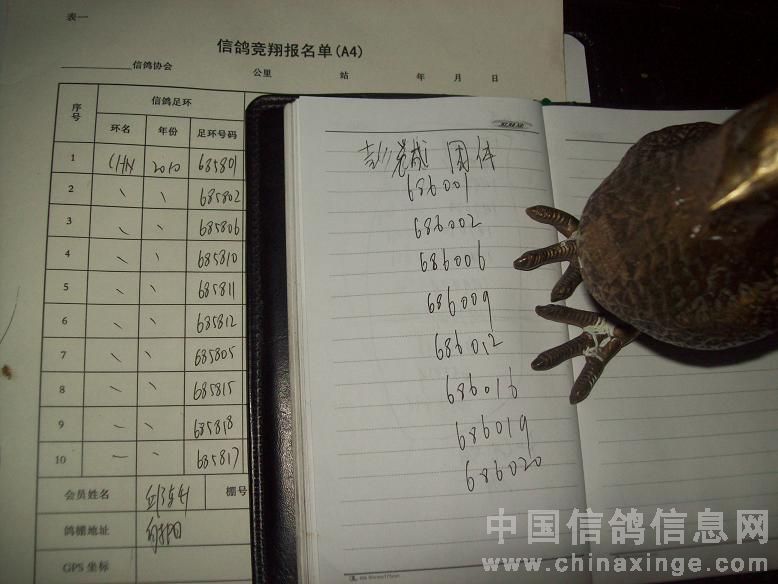 表一
信鸽竞翔报名单(A4)
信鸽协会 公里 站 年 月 日
序号 信鸽足环
环名 年份 足环号码
1 CHN 2010 685801
2 \ \ 685802
3 \ \ 685806
4 \ \ 685810
5 \ \ 685811
6 \ \ 685812
7 \ \ 685805
8 \ \ 685815
9 \ \ 685818
10 685817
会员姓名 棚号
鸽棚地址
GPS 坐标
团体
686001
686002
686006
686009
686012
686016
686019
686020
中国信鸽信息网
www.chinaxinge.com